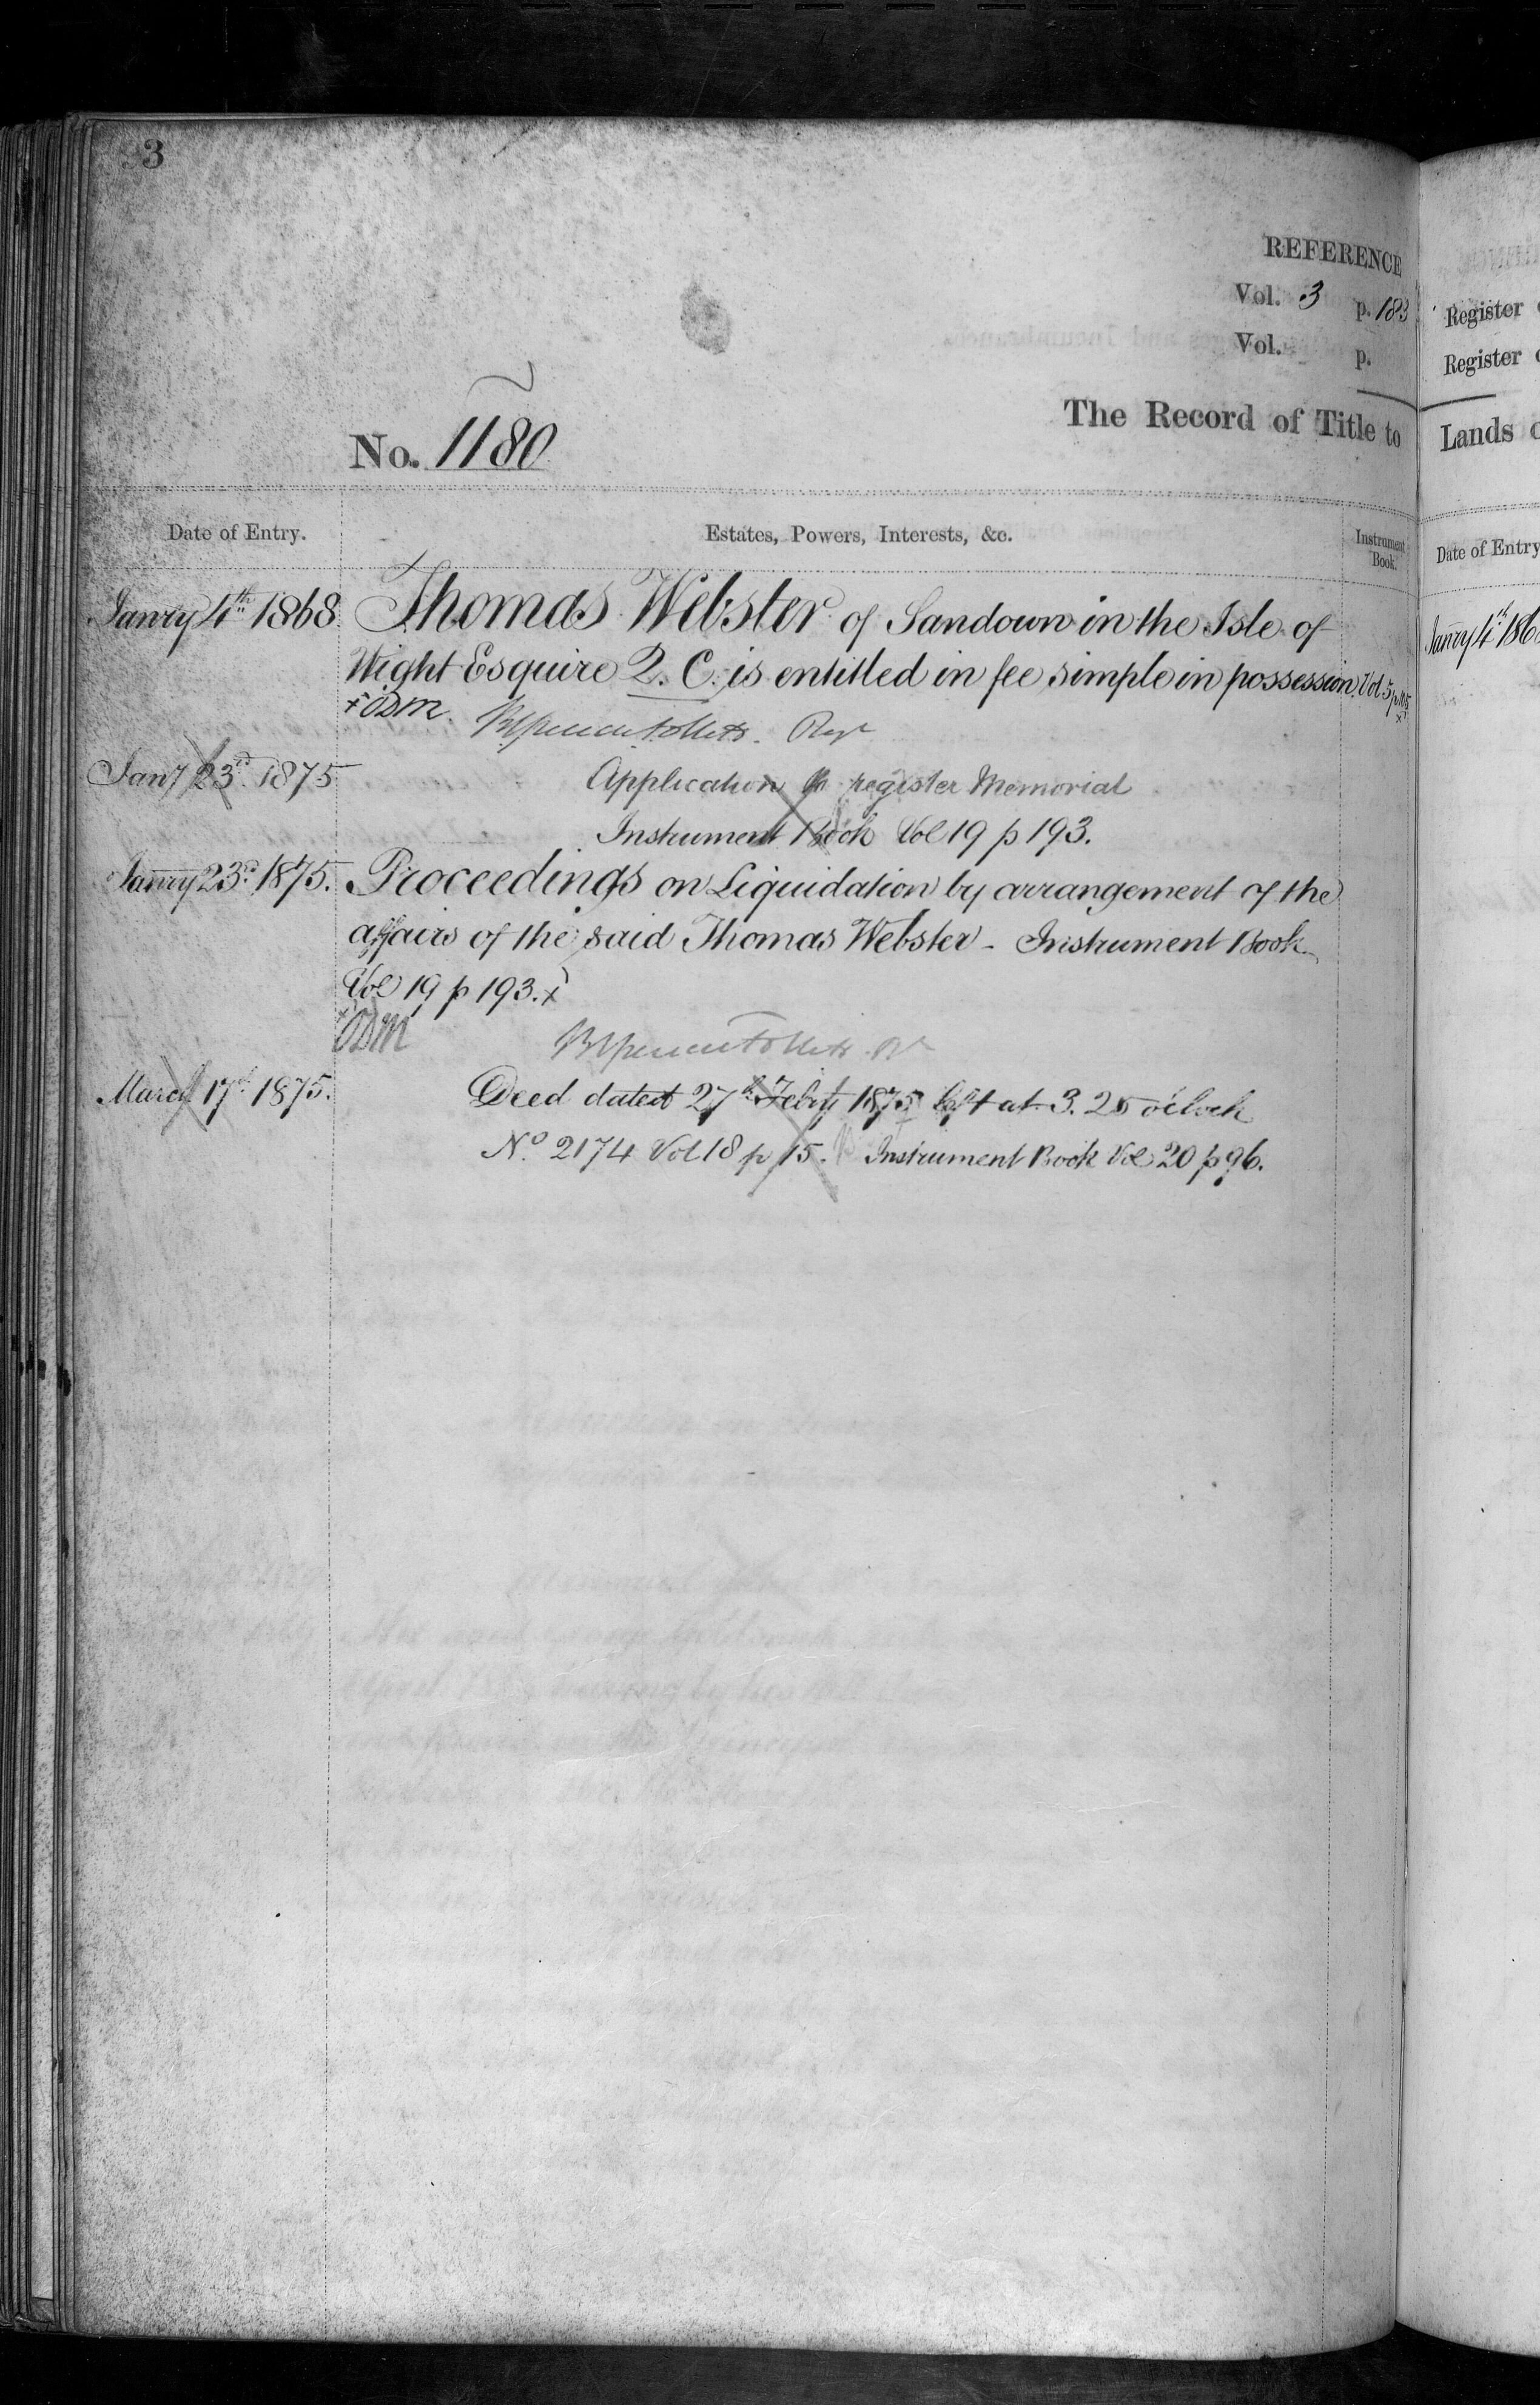 3
REFERENCE
Vol. 3 p. 183
Vol. p.
Register
Register
No. 1180
The Record of Title to
Lands
Date of Entry.
Estates, Powers, Interests, &c.
Instrument Book.
Date of Entry
Janry 4th 1868. Thomas Webster of Sandown in the Isle of
Wight Esquire Q. C. is entitled in fee simple in possession. Vol 5 p
Janry 4th 186
+ ODM.
Jany 23rd 1875 Application to register Memorial
Instrument Book Vol 19 p 193.
Janry 23rd 1875. Proceedings on Liquidation by arrangement of the
affairs of the said Thomas Webster - Instrument Book
Vol 19 p 193. x
x ODM
March 17th 1875. Deed dated 27th Feby 1875 left at 3. 25 o'clock
No. 2174 Vol 18 p 15. Instrument Book Vol 20 p 96.